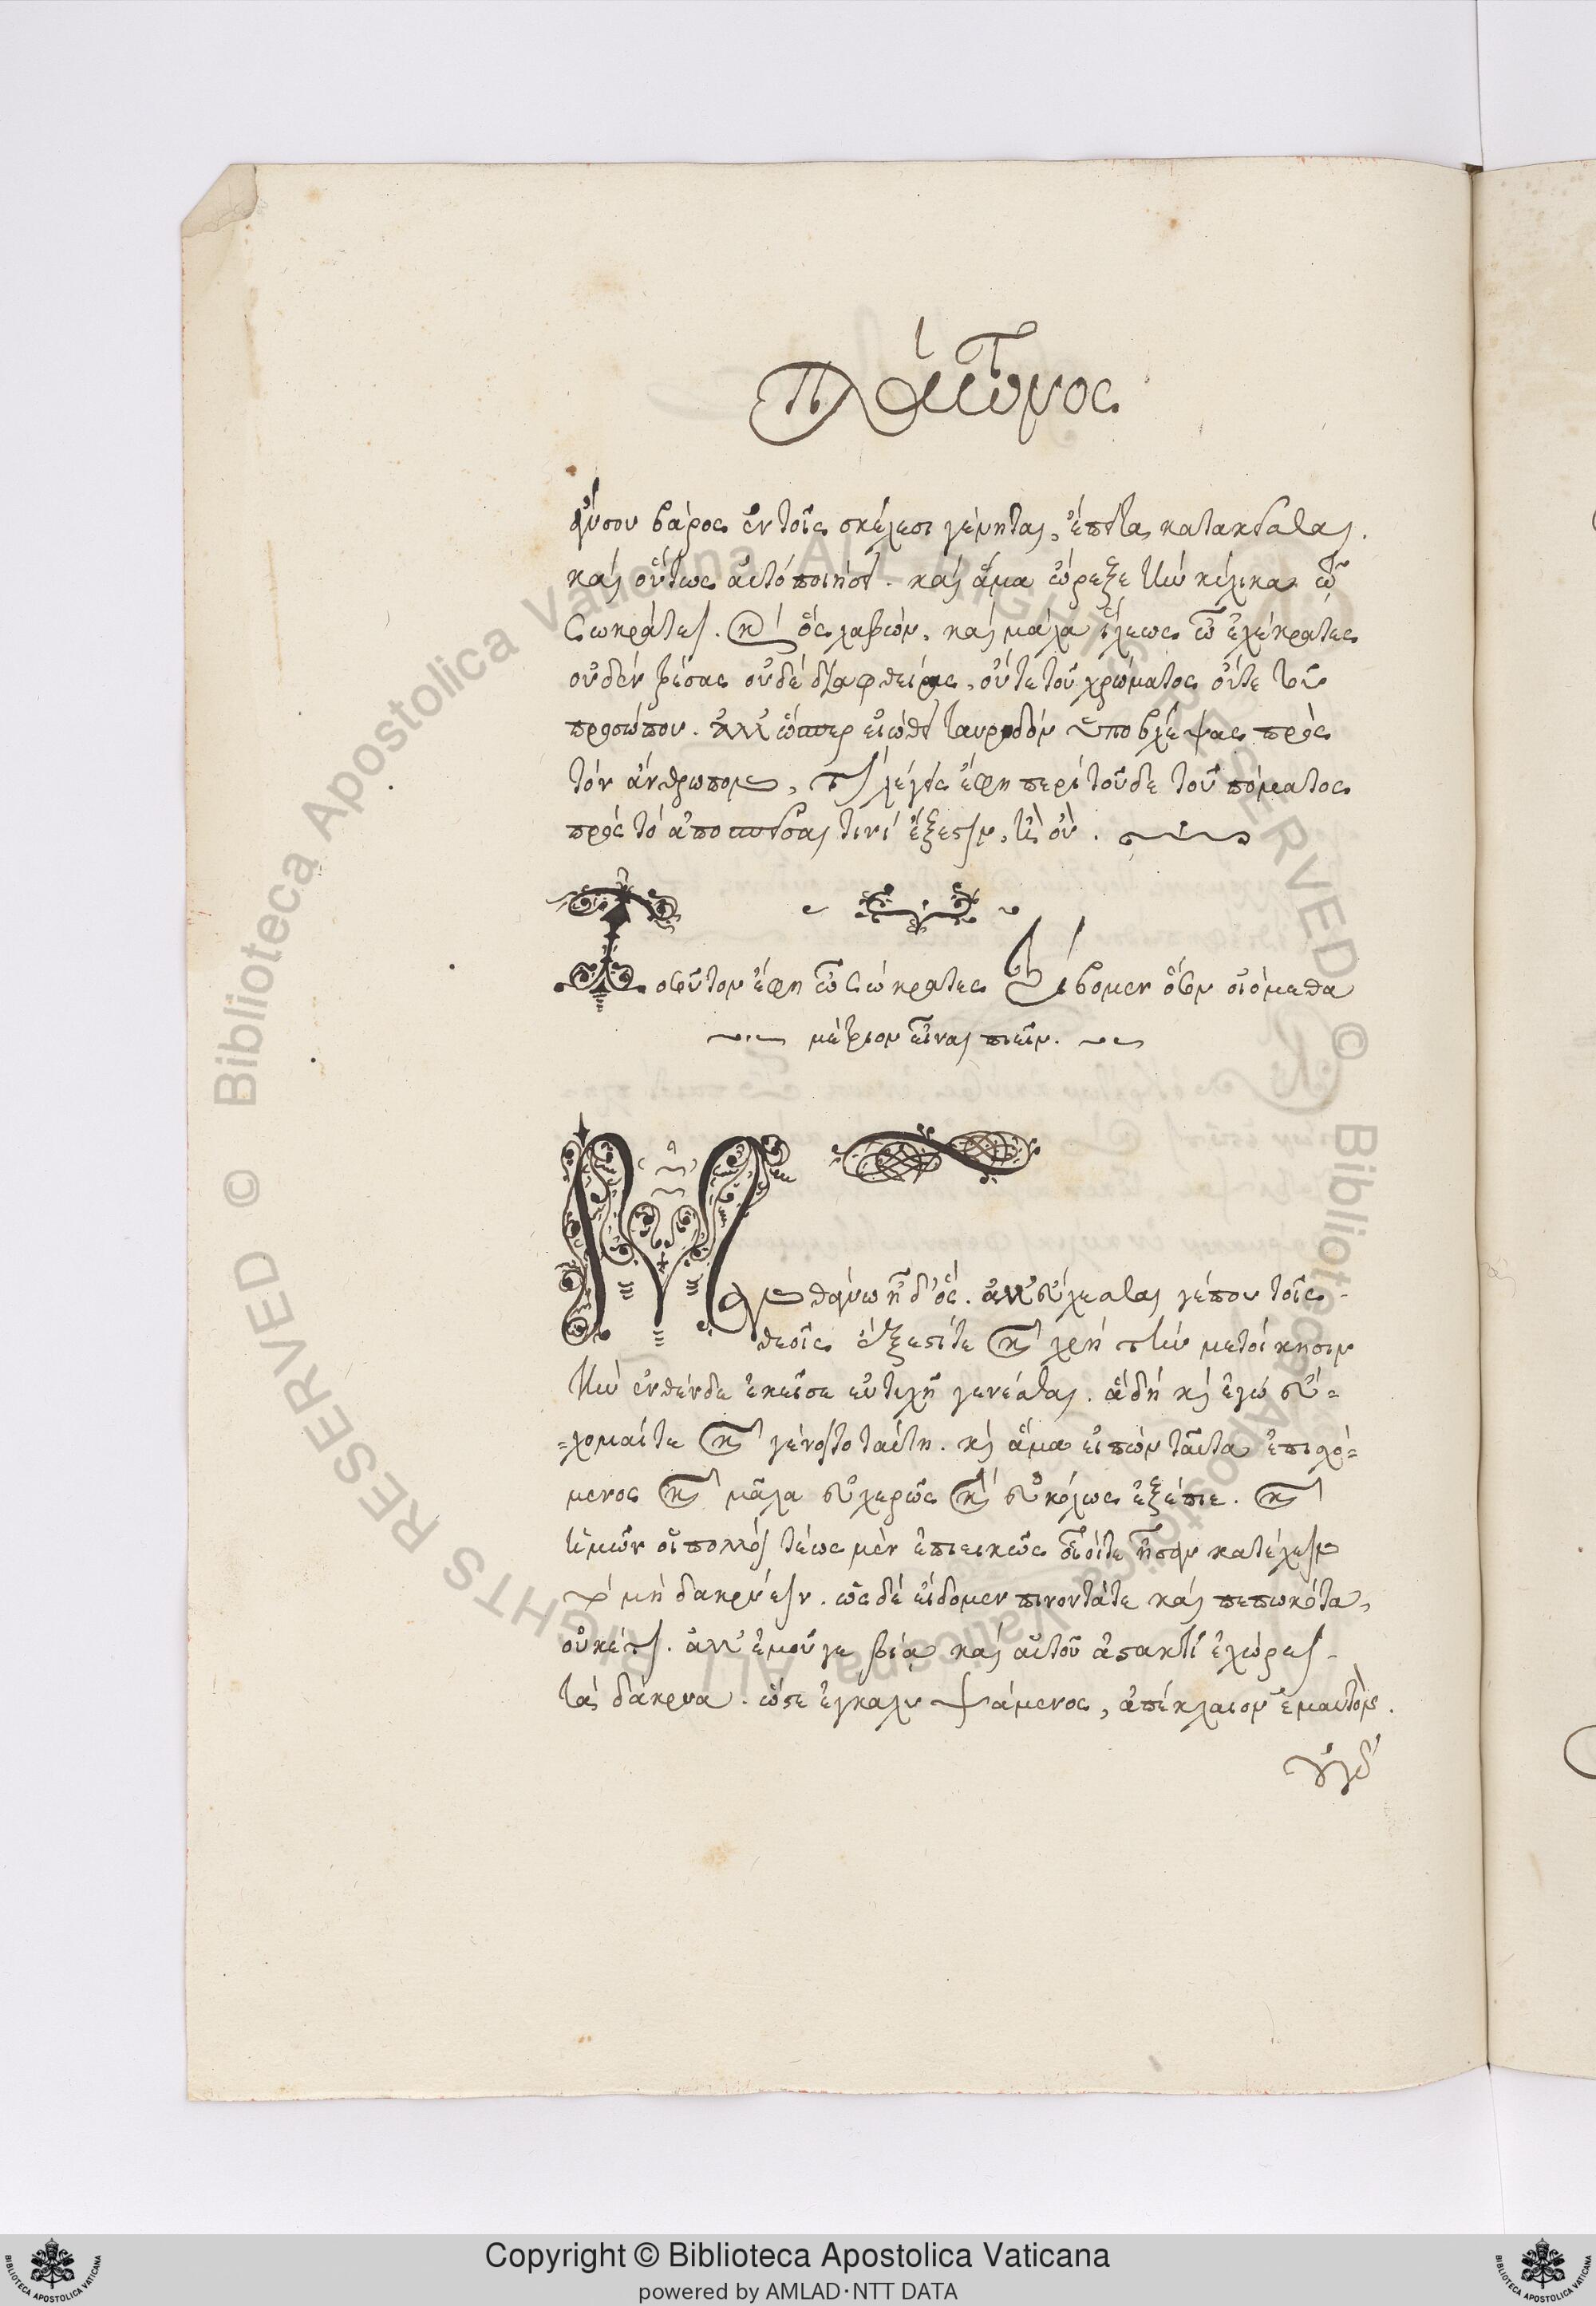 Πλάτωνος
σου βάρος ἐν τοῖς σκέλεσι γένηται, ἔπειτα κατακεῖσθαι.
καὶ οὕτως αὐτὸ ποιήσει. καὶ ἅμα ὤρεξε τὴν κύλικα τῷ
Σωκράτει. καὶ ὃς λαβὼν, καὶ μάλα ἵλεως ὦ ἐχέκρατες
οὐδὲν τρέσας οὐδὲ διαφθείρας, οὔτε τοῦ χρώματος οὔτε τοῦ
προσώπου. ἀλλ' ὥσπερ εἰώθει ταυρηδὸν ὑποβλέψας πρὸς
τὸν ἄνθρωπον, τί λέγεις ἔφη περὶ τοῦδε τοῦ πόματος
πρὸς τὸ ἀποσπεῖσαι τινί ἔξεστιν, ἢ οὐ.
Τοσοῦτον ἔφη ὦ Σώκρατες τρίβομεν ὅσον οἰόμεθα
μέτριον εἶναι πιεῖν.
Μανθάνω ἦ δ' ὅς. ἀλλ' εὔχεσθαι γέ που τοῖς
θεοῖς ἔξεστί τε καὶ χρὴ τὴν μετοίκησιν
τὴν ἐνθένδε ἐκεῖσε εὐτυχῆ γενέσθαι. ἃ δὴ καὶ ἐγὼ εὔ=
=χομαί τε καὶ γένοιτο ταύτῃ. καὶ ἅμα εἰπὼν ταῦτα ἐπισχό=
μενος καὶ μάλα εὐχερῶς καὶ εὐκόλως ἐξέπιε. καὶ
ἡμῶν οἱ πολλοὶ τέως μὲν ἐπιεικῶς οἷοί τε ἦσαν κατέχειν
τὸ μὴ δακρύειν. ὡς δὲ εἴδομεν πίνοντά τε καὶ πεπωκότα,
οὐκέτι. ἀλλ' ἐμοῦ γε βίᾳ καὶ αὐτοῦ ἀστακτὶ ἐχώρει
τὰ δάκρυα. ὥστε ἐγκαλυψάμενος, ἀπέκλαιον ἐμαυτόν.
οὐ γὰρ
Copyright © Biblioteca Apostolica Vaticana
powered by AMLAD・NTT DATA